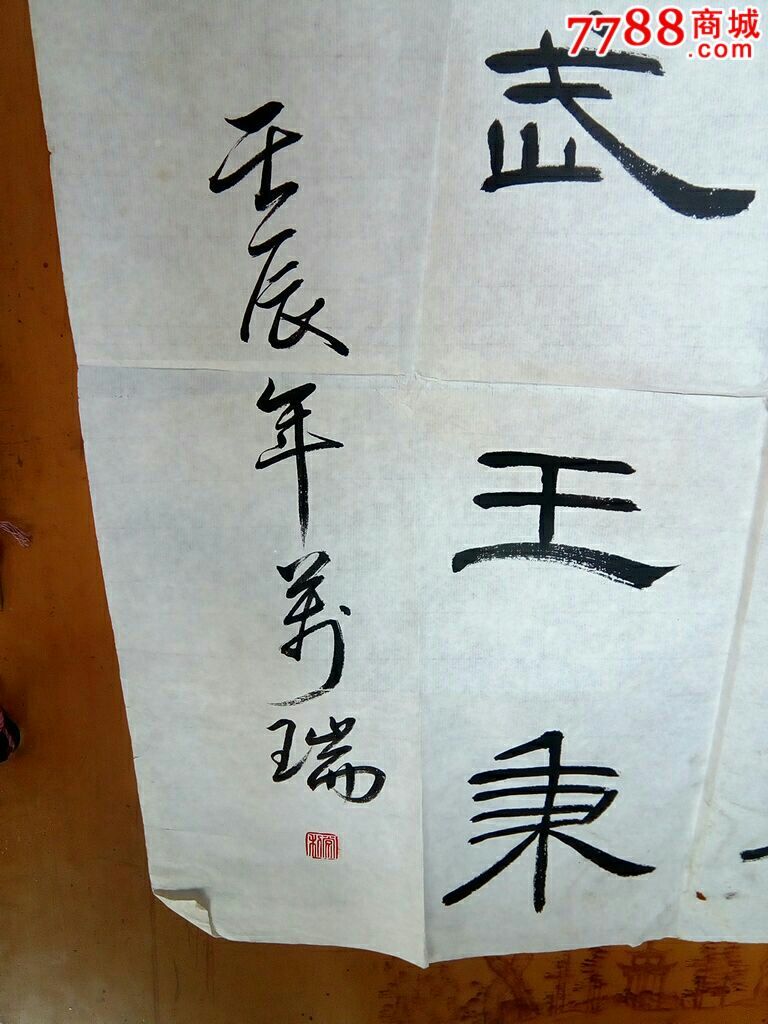 7788商城
.com
武王秉
壬辰年万瑞